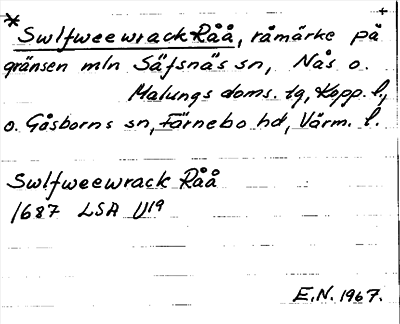 * Swlfweewrack Råå, råmärke på +
gränsen mln Säfsnäs sn, Nås o.
Malungs doms. tg, Kopp. l.,
o. Gåsborns sn, Färnebo hd, Värm. l.
Swlfweewrack Råå
1687 LSA U19
E.N. 1967.